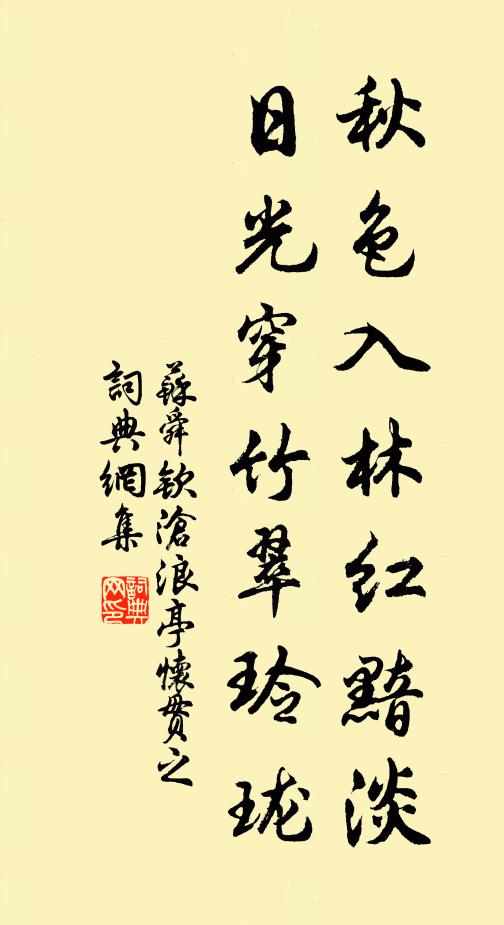 秋色入林红黯淡
日光穿竹翠玲珑
蘇舜欽滄浪亭懷貫之
詞典網集
詞典网印